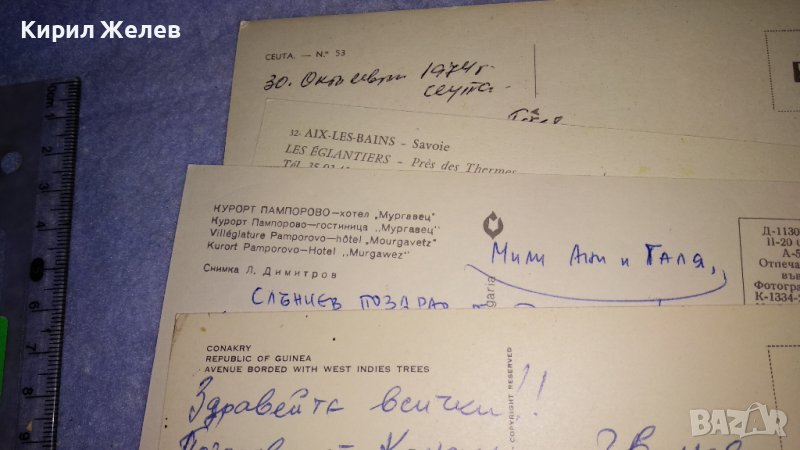 Кирил Желев
CEUTA. — N.º 53
30. Октомври 1974г
Сеута.
32- AIX-LES-BAINS - Savoie
LES ÉGLANTIERS - Près des Thermes
Tél. 35.03
КУРОРТ ПАМПОРОВО—хотел „Мургавец"
Курорт Пампорово—гостиница „Мургавец"
Villéglature Pamporovo—hôtel „Mourgavetz"
Kurort Pamporovo—Hotel „Murgawez"
Снимка Л. Димитров
garia
Мили Ани и Галя,
Слънчев поздрав
Д-1130
II-20
А-5
Отпеча
във
Фотогра
К-1334-2
CONAKRY
REPUBLIC OF GUINEA
AVENUE BORDED WITH WEST INDIES TREES
COPYRIGHT RESERVED
Здравейте всички!!
bazar
0cm 1 2 3 4 5 6 7 8 9